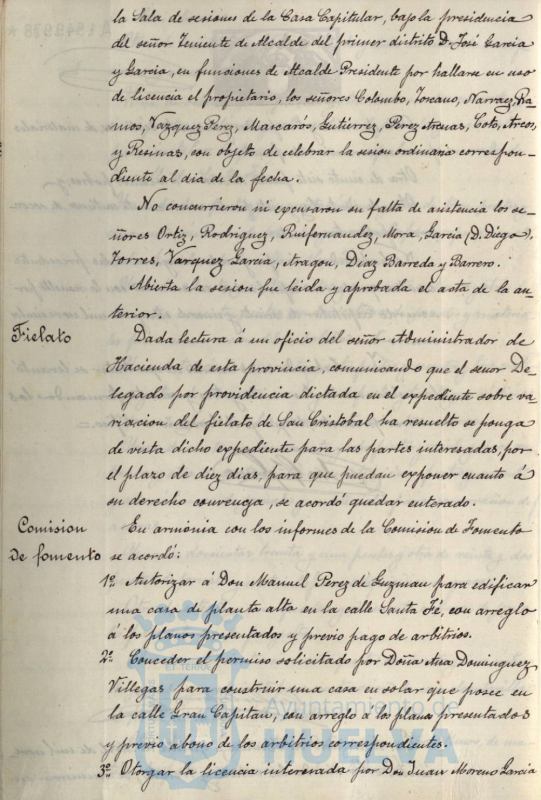 la Sala de sesiones de la Casa Capitular, bajo la presidencia
del señor Teniente de Alcalde del primer distrito D. José Garcia
y Garcia, en funciones de Alcalde Presidente por hallarse en uso
de licencia el propietario, los señores Colombo, Toscano, Narraez, Ra-
mos, Vazquez Perez, Mascarós, Gutierrez, Perez Arenas, Coto, Arcos,
y Resinas, con objeto de celebrar la sesion ordinaria correspon-
diente al dia de la fecha.
No concurrieron ni excusaron su falta de asistencia los se-
ñores Ortiz, Rodriguez, Ruifernandez, Mora, Garcia (D. Diego),
Torres, Vazquez Garcia, Aragon, Diaz Barreda y Barrero.
Abierta la sesion fue leida y aprobada el acta de la an-
terior.
Fielato
Dada lectura á un oficio del señor Administrador de
Hacienda de esta provincia, comunicando que el señor De-
legado por providencia dictada en el expediente sobre va-
riacion del fielato de San Cristobal ha resuelto se ponga
de vista dicho expediente para las partes interesadas, por
el plazo de diez dias, para que puedan exponer cuanto á
su derecho convenga, se acordó quedar enterado.
Comision
de fomento
En armonia con los informes de la Comision de Fomento
se acordó:
1º Autorizar á Don Manuel Perez de Guzman para edificar
una casa de planta alta en la calle Santa Fé, con arreglo
á los planos presentados y previo pago de arbitrios.
2º Conceder el permiso solicitado por Doña Ana Dominguez
Villegas para construir una casa en solar que posee en
la calle Gran Capitan, con arreglo á los planos presentados
y previo abono de los arbitrios correspondientes.
3º Otorgar la licencia interesada por Don Juan Moreno Garcia
Ayuntamiento de
HUELVA